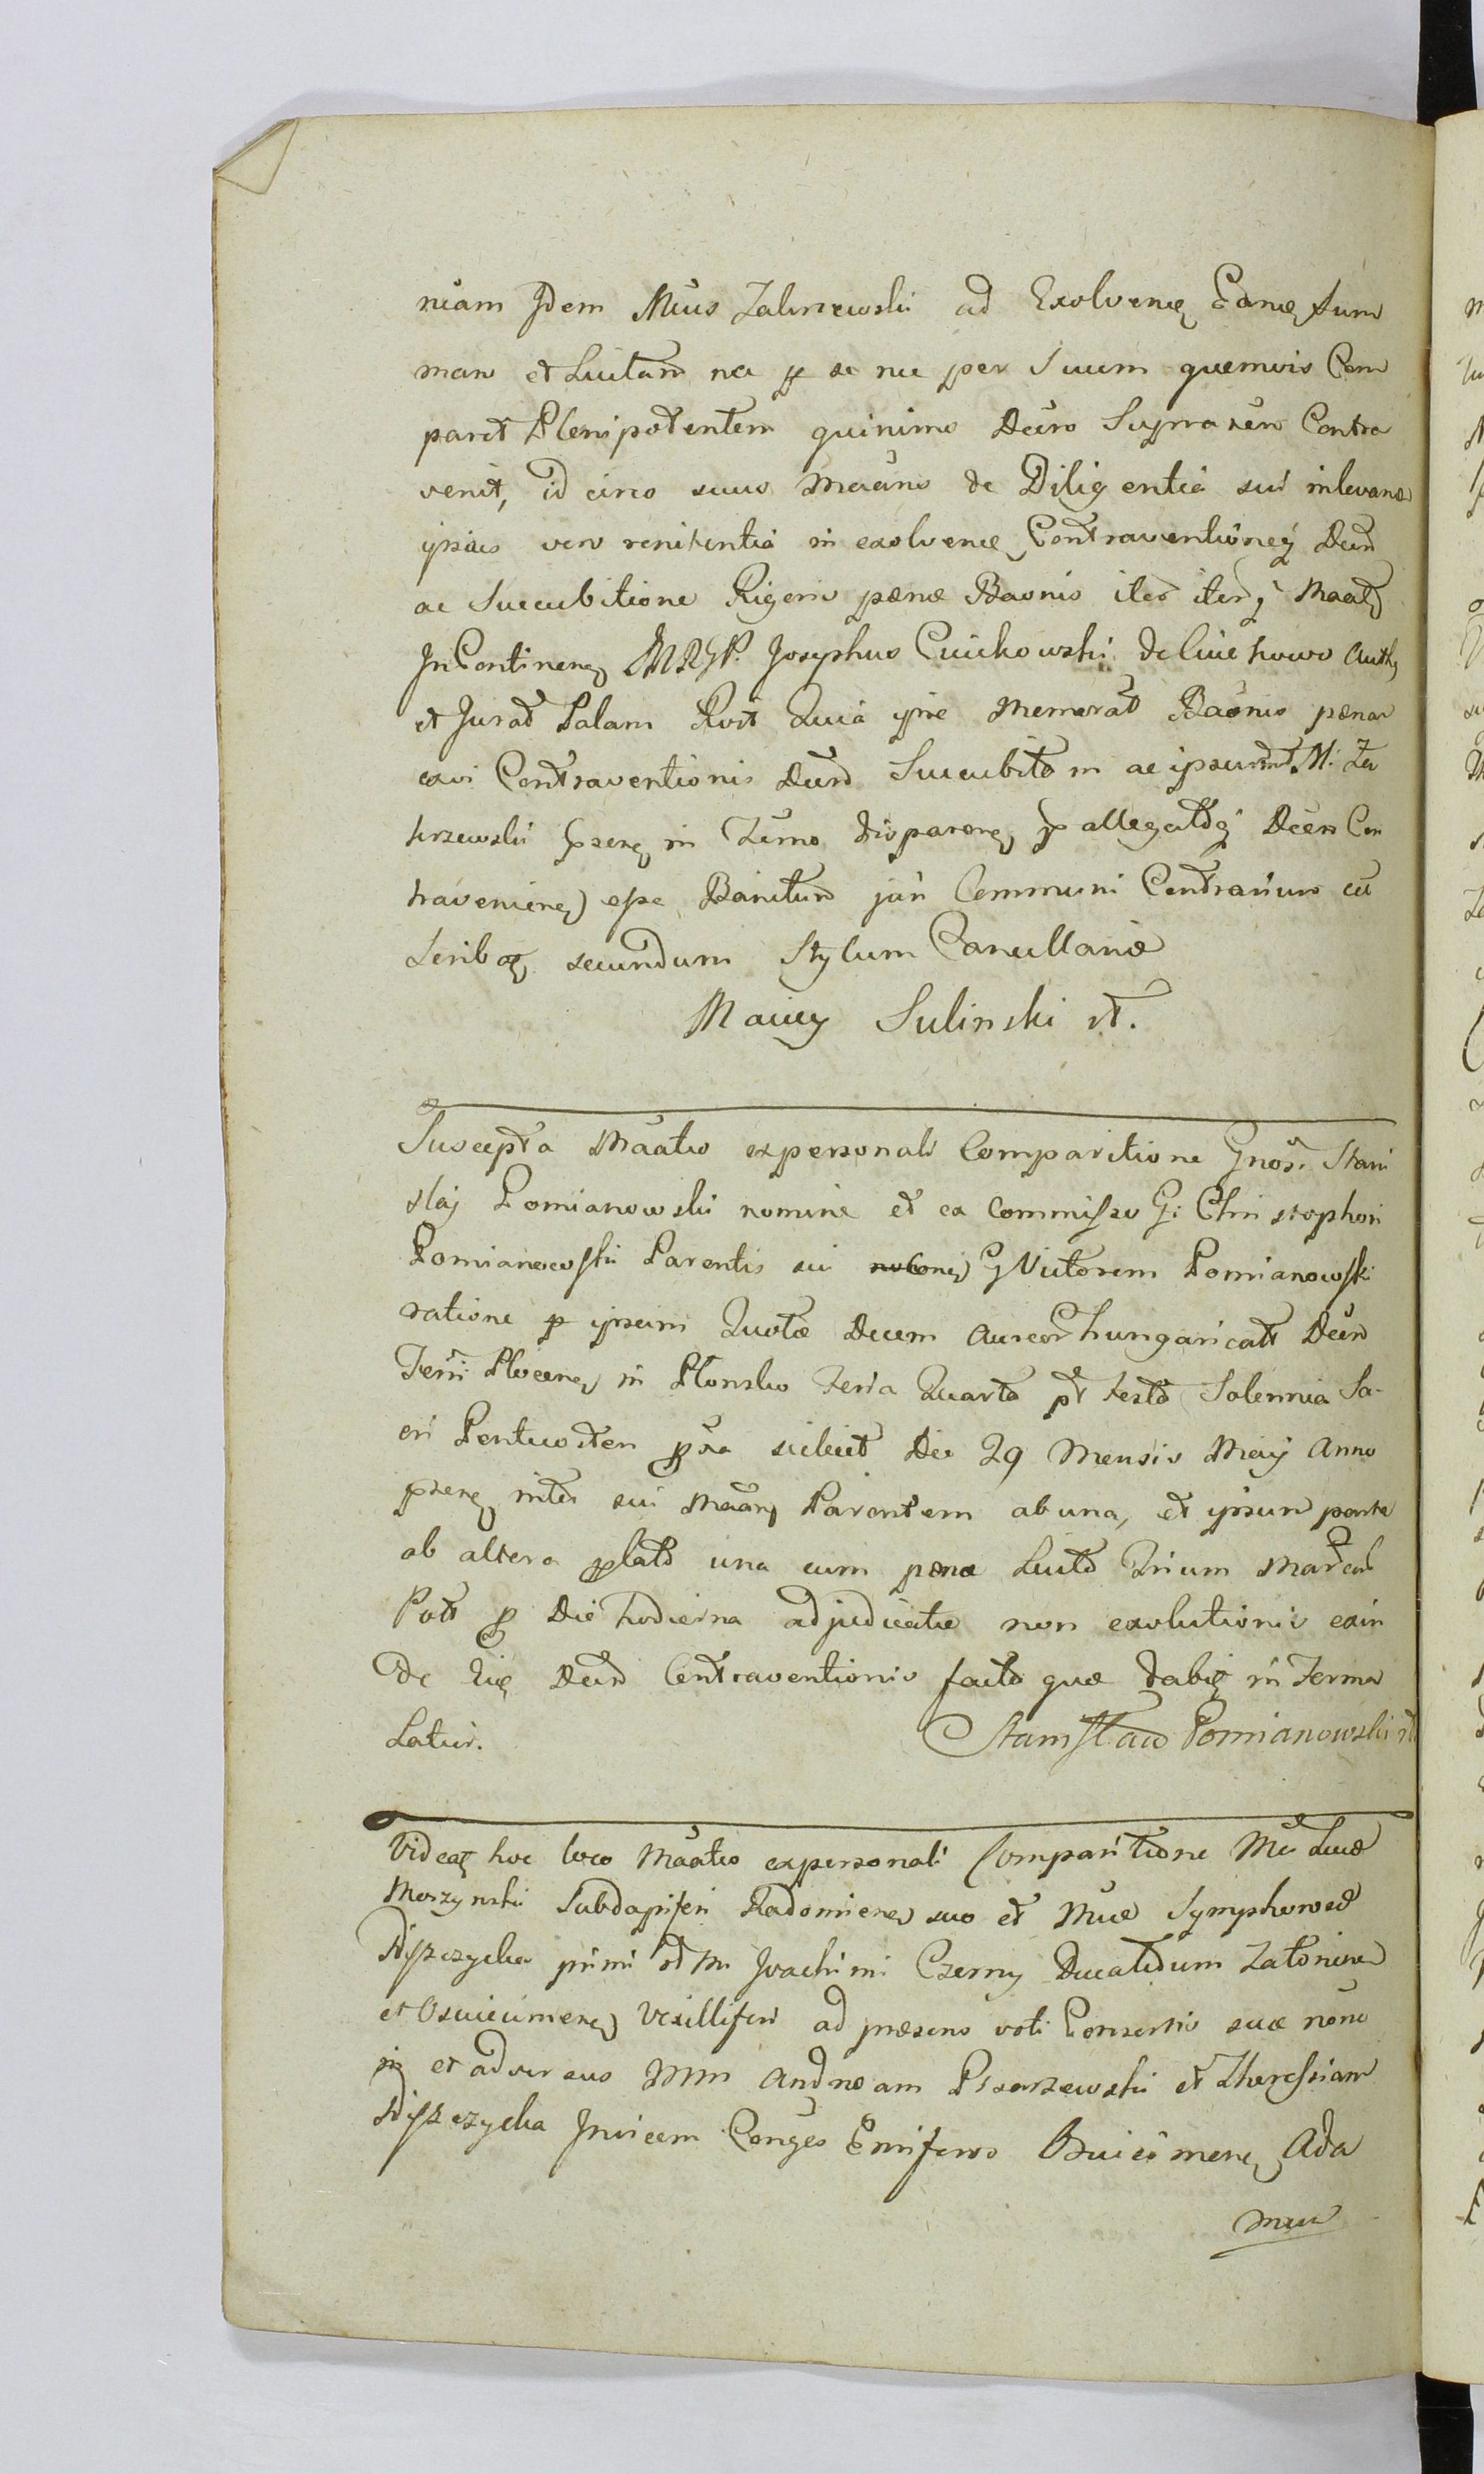 niam Idem Mcus Zakrzewski ad Exolvene Eande sum
mam et Luitam nec p se nec per Suum quemvis Com
paret Plenipotentem quinimo Decro Suprascro Contra
venit, id circo suus Maans de Diligentia sui in levanda
ipsius vero renitentia in exolvene Contraventioneq Decro
ac Succubitione Rigoris pænæ Baonis iter iterq Maats
In Continenq MRGP. Josephus Cuichowski de Cuichowo Auth
et Jurat Palam Rcit Quia ipse Memorat Baonis pænæ
exvi Contraventionis Decro Succubito in ac ipsum M. Za
krzewski psenq in Termo disparenq p allegatoq Decro Con
travenienq esse Banitum jam Communi Contrarium cu
Scribæ secundum Stylum Cancellariæ
Maciey Sulinski mp.
Suscepta Maatio expersonali Comparitione Gnosi Stani
slai Pomianowski nomine et ex Commisso G: Christophori
Pomianowski Parentis sui G Victorem Pomianowski
ratione p ipsum Quotæ Decem Aureor hungaricalt Decro
Terri Plocenq in Plonsko Feria Quarta pt festa Solennia Sa-
cri Pentecosten pxa scilicet Die 29 Mensis Maij Anno
psenq inter sui Maanq Parentem ab una, et ipsum parte
ab altera plato una cum pæna Luito Trium Marcar
Polt p Die hodierna adjudicatæ non exolutionis exin
de Eiq Decro Contraventionis facto quæ dabit in Forma
Latur. Stanisław Pomianowski mp
Videat hoc loco Maatio expersonali Comparitione Mci Lucæ
Morzynski Subdapiferi Radomienq suo et Mcæ Symphorosæ
primi et M. Joachimi Czerny Ducatuum Zatorien
et Osviecimenq Vexilliferi ad præsens voti Consortis suæ none
in et adversus MM Andream Pisarzewski et Theressiam
Invicem Conges Ensiferos Osviecimenq Ada
mcu